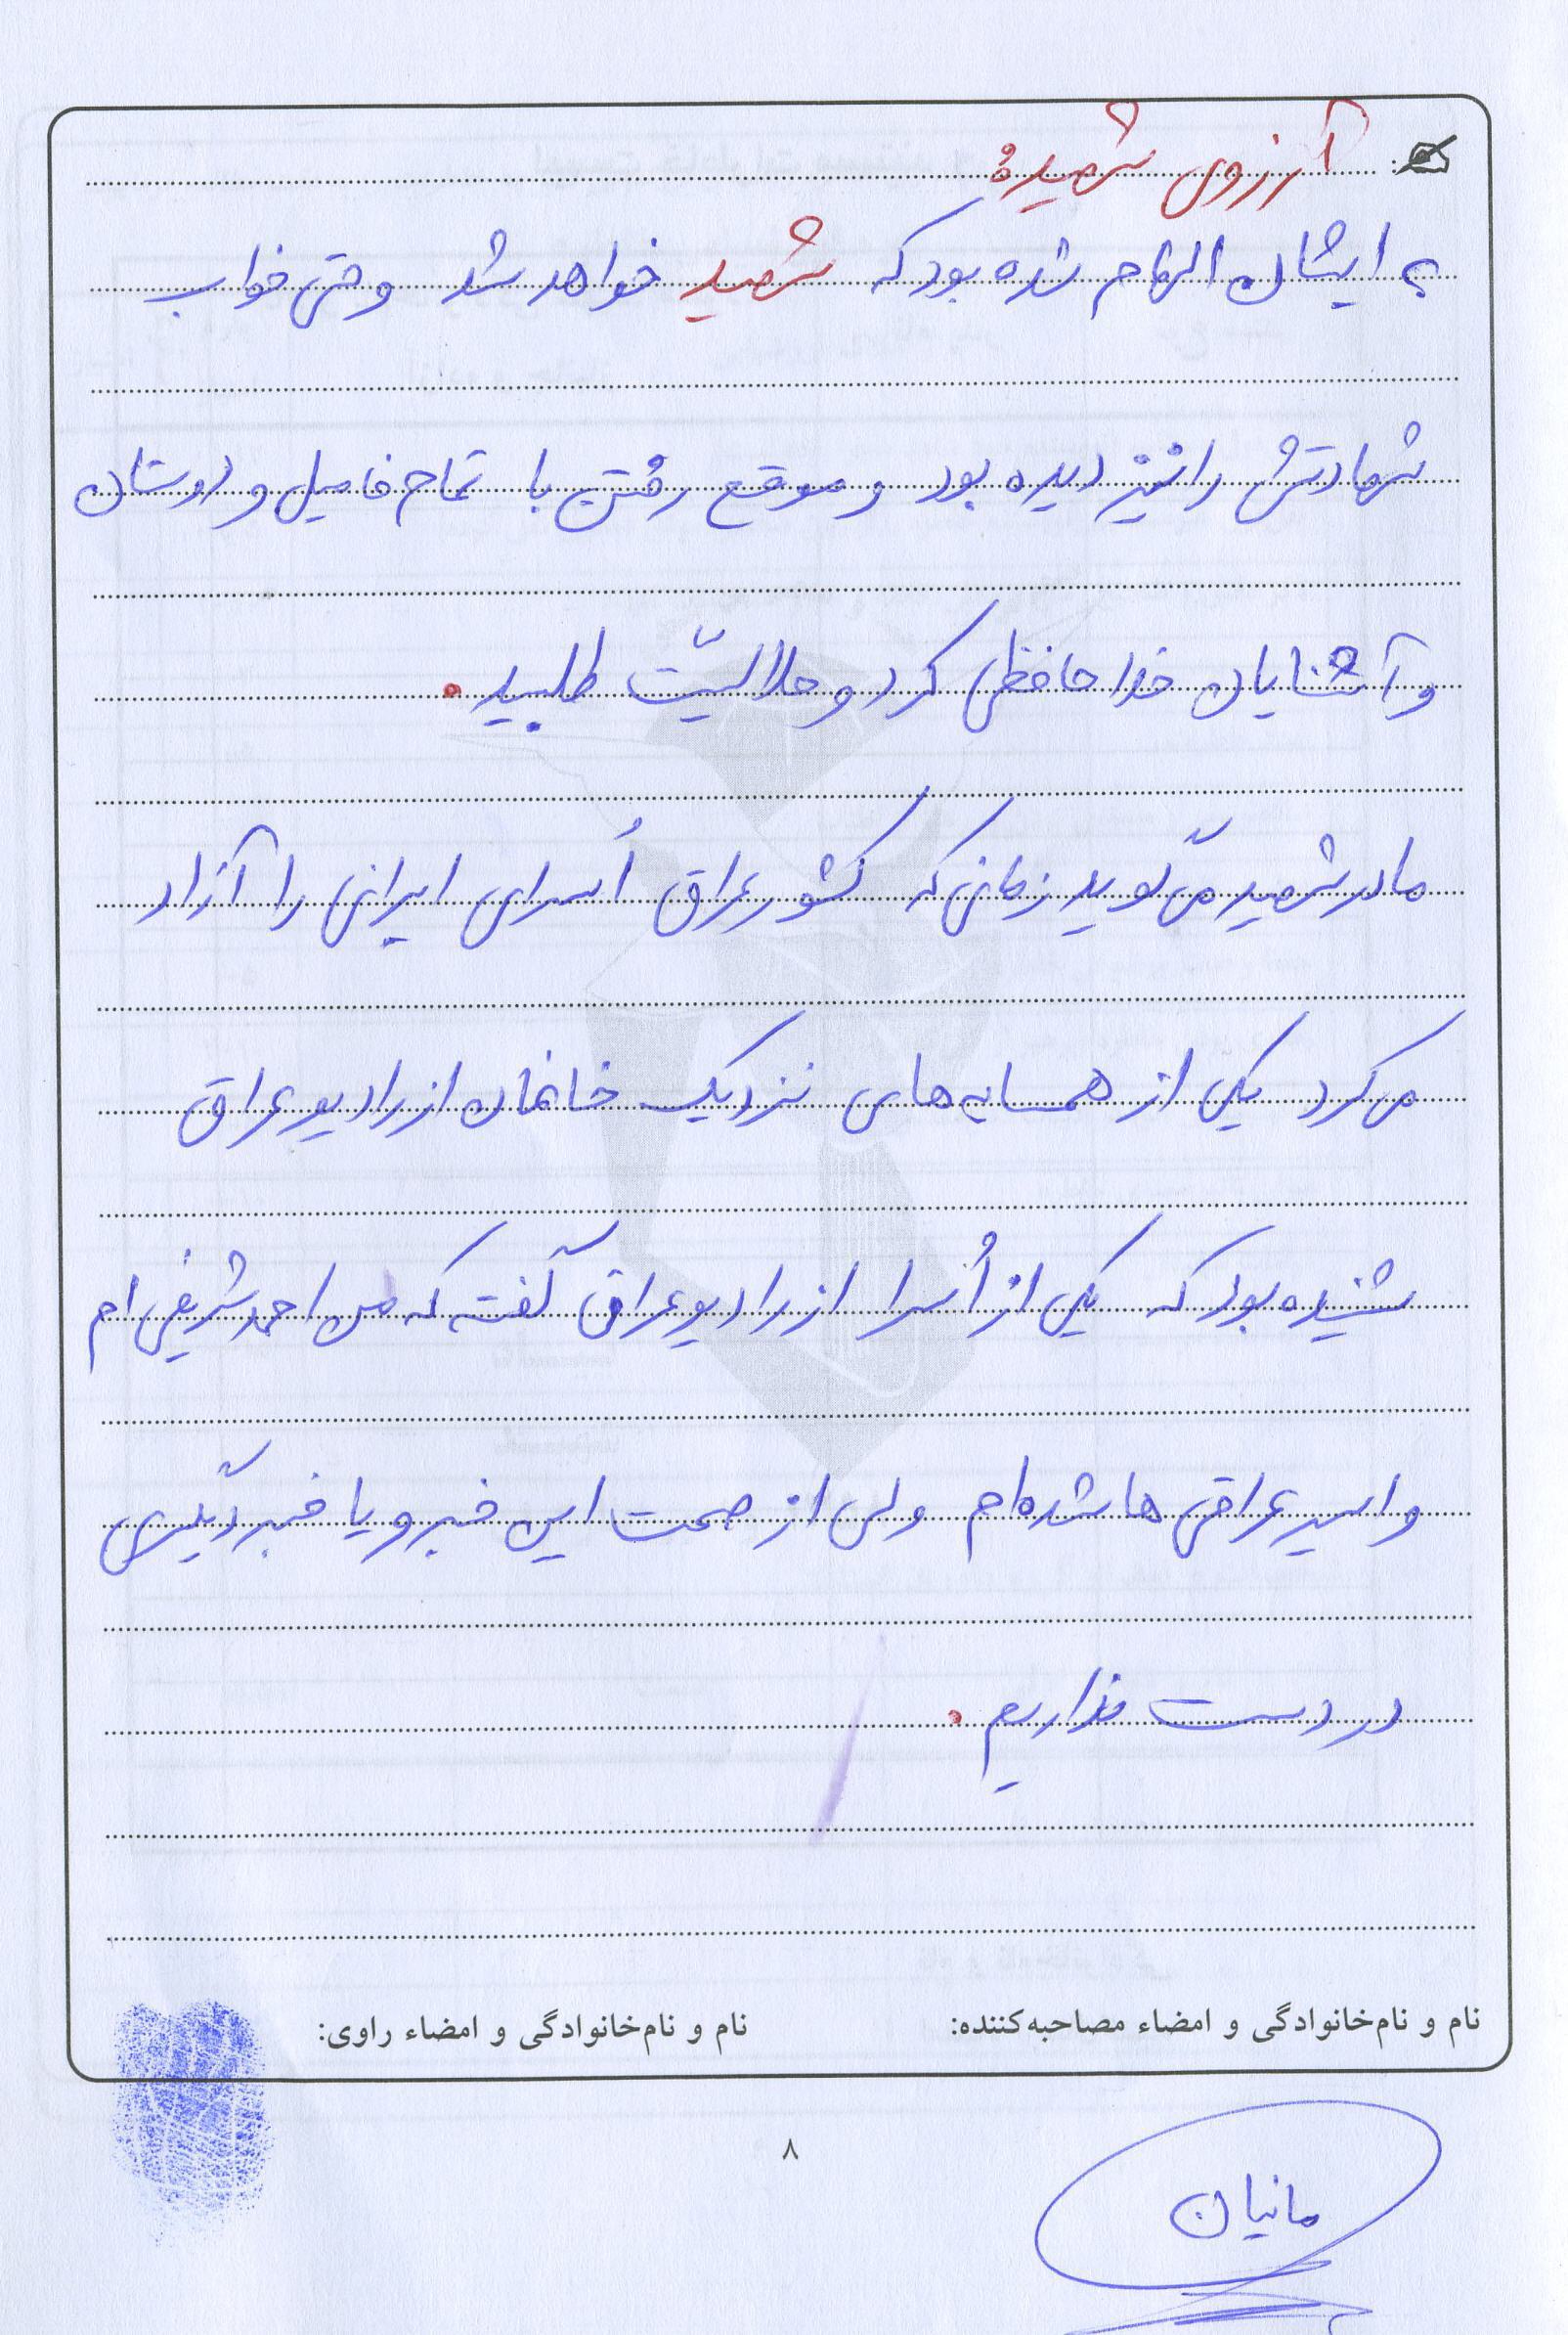 آرزوی شهید:
به ایشان الهام شده بود که شهید خواهد شد و حتی خواب
شهادتش را نیز دیده بود و موقع رفتن با تمام فامیل و دوستان
و آشنایان خداحافظی کرد و حلالیّت طلبید.
مادر شهید می‌گوید زمانی که کشور عراق اُسرای ایرانی را آزاد
می‌کرد یکی از همسایه‌های نزدیک خانمان از رادیو عراق
شنیده بود که یکی از اُسرا از رادیو عراق گفت که من احمد شریفی ام
و اسیر عراقی ها شده‌ام ولی از صحت این خبر و یا خبر دیگری
در دست نداریم.
نام و نام‌خانوادگی و امضاء مصاحبه‌کننده: نام و نام‌خانوادگی و امضاء راوی:
۸
مانیان